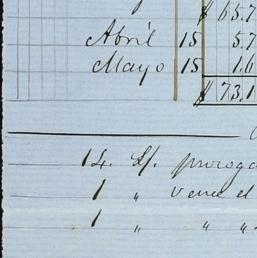 $ 65.7
Abril 15 5.7
Mayo 15 1.6
$ 73.1
14. Lf. proroga
1 " vence el
1 " " "